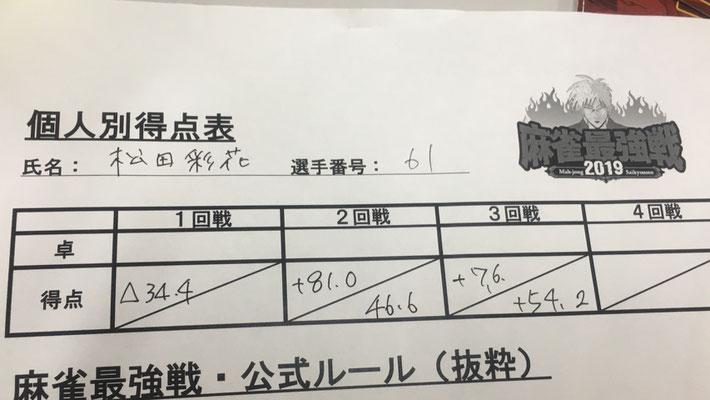 個人別得点表
氏名： 松田彩花 選手番号： 61
麻雀最強戦
2019
Mah-jong Saikyosen
1回戦 2回戦 3回戦 4回戦
卓
得点 △34.4 +81.0 46.6 +7.6 +54.2
麻雀最強戦・公式ルール（抜粋）